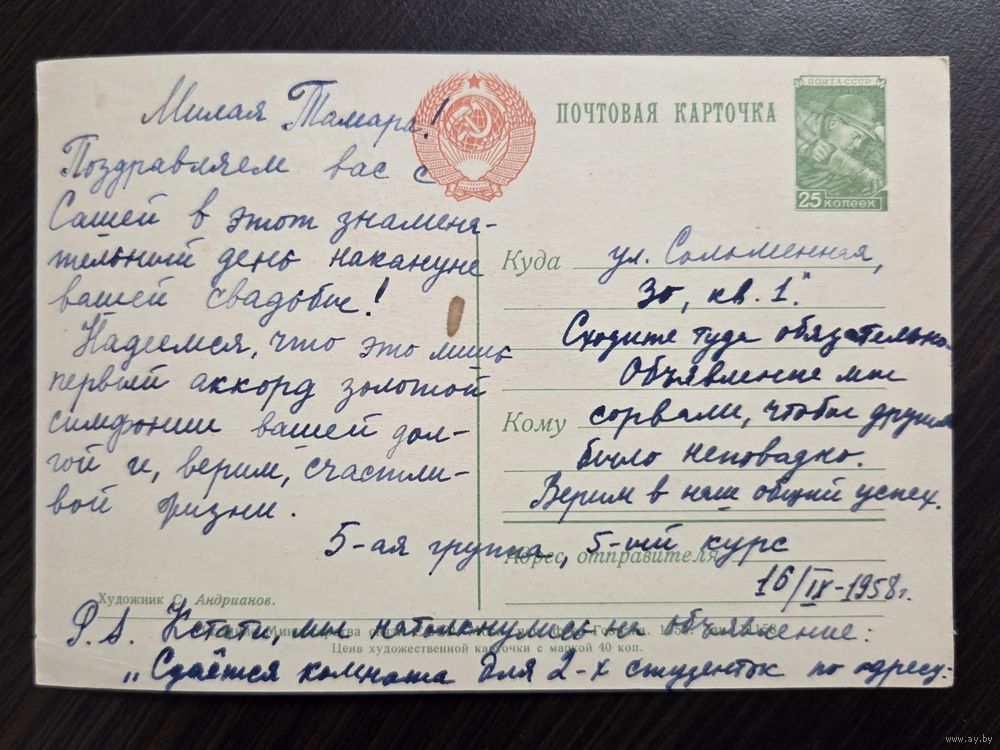 Милая Тамара!
Поздравляем вас с
Сашей в этот знамена-
тельный день накануне
вашей свадьбы!
Надеемся, что это лишь
первый аккорд золотой
симфонии вашей дол-
гой и, верим, счастли-
вой жизни.
5-ая группа, 5-ый курс
16/IX-1958г.
P.S. Кстати, мы натолкнулись на объявление:
„Сдаётся комната для 2-х студенток по адресу:
ул. Соломенная,
30, кв. 1."
Сходите туда обязательно.
Объявление мы
сорвали, чтобы другим
было неповадно.
Верим в наш общий успех.
ПОЧТОВАЯ КАРТОЧКА
ПОЧТА·СССР
25 КОПЕЕК
Куда
Кому
Адрес отправителя
Художник С. Андрианов.
Министерства
Цена художественной карточки с маркой 40 коп.
www.ay.by